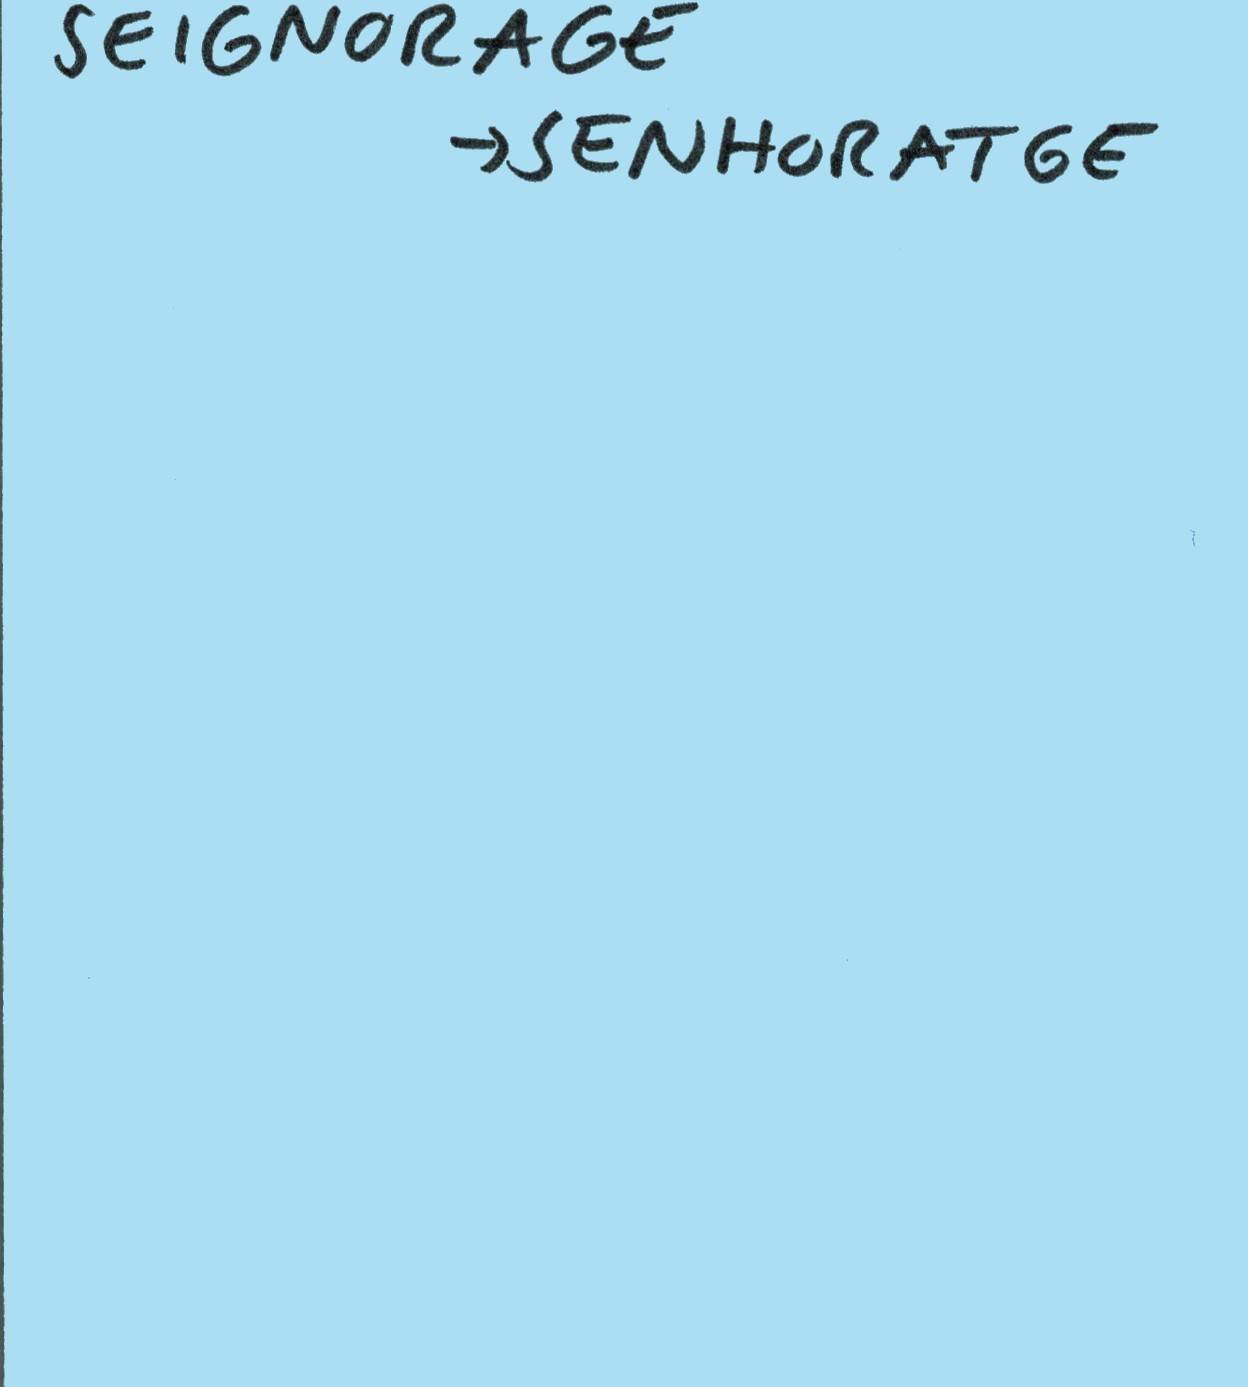 SEIGNORAGE
→SENHORATGE